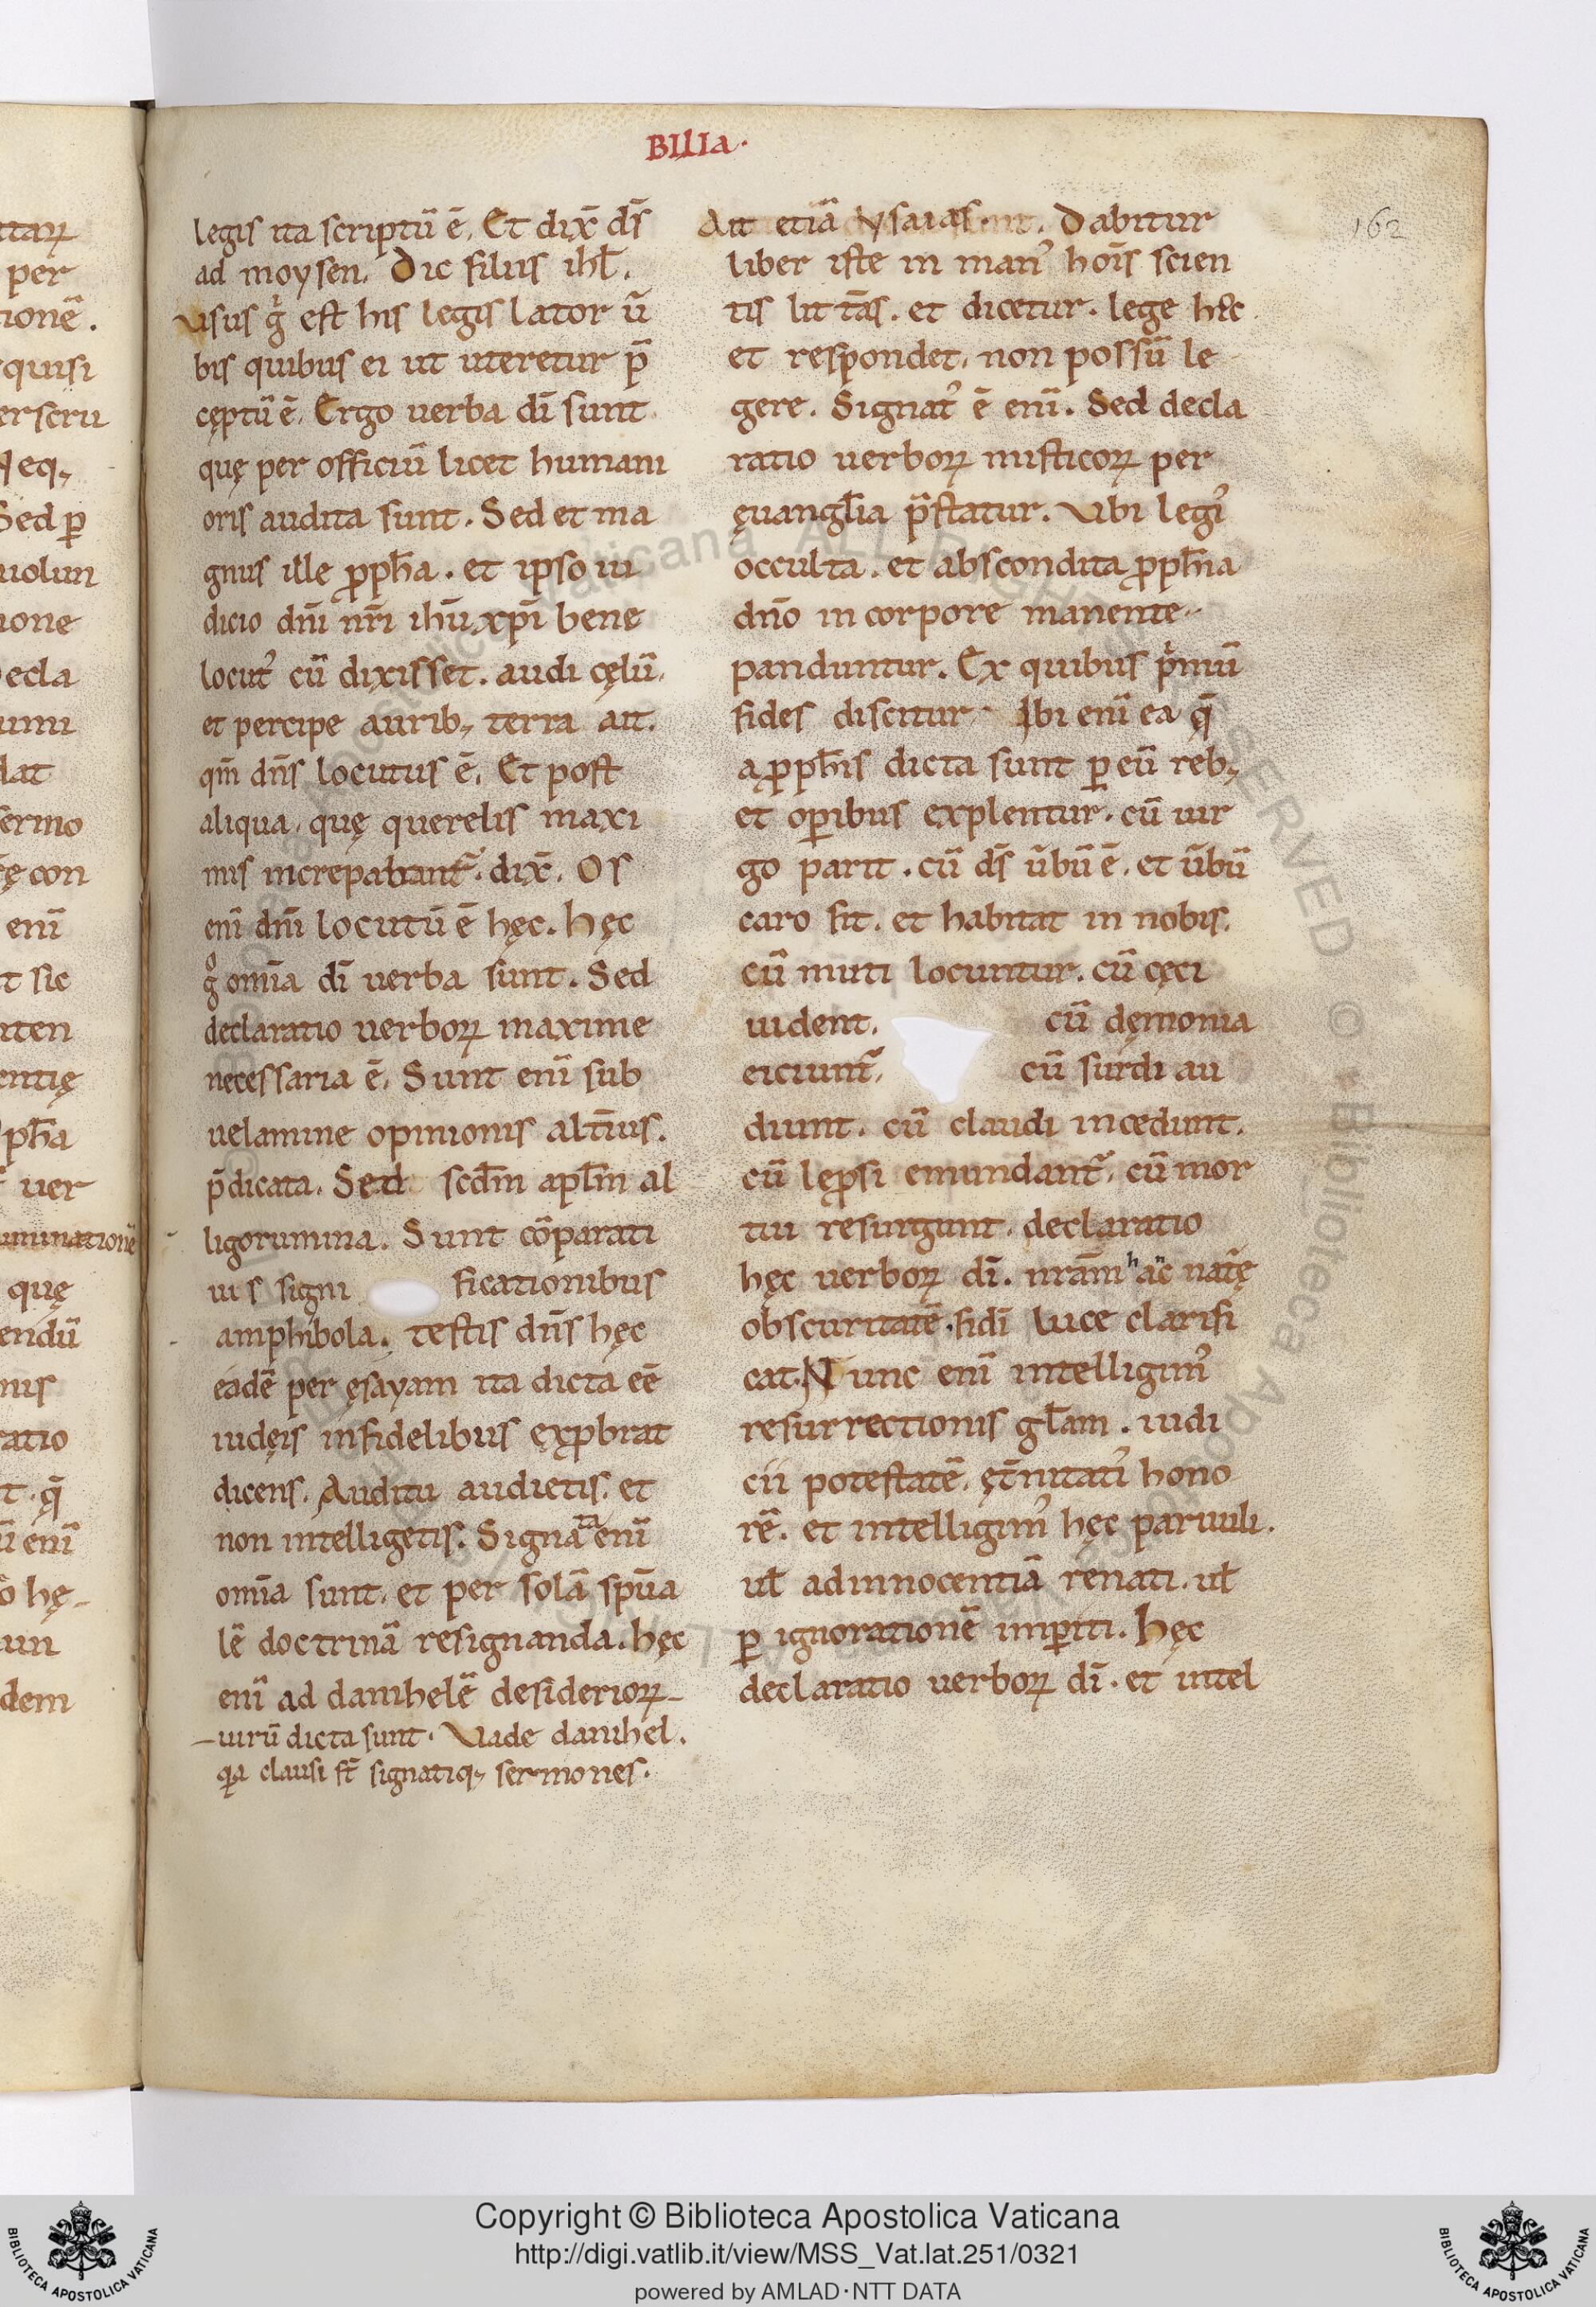 BIIIa.
162
legis ita scriptū ē. Et dix̄ ds̄
ad moysen. Dic filiis ihl̄.
Usus g̊ est his legis lator ū
bis quibus ei ut uteretur p̄
cęptū ē. Ergo uerba dī sunt
quę per officiū licet humani
oris audita sunt. Sed et ma
gnus ille ꝓph̄a. et ipso iu
dicio dnī nrī ihū xp̄ī bene
locut᾿ cū dixisset. audi cęlū.
et percipe aurib; terra ait.
qm̄ dn̄s locutus ē. Et post
aliqua. quę querelis maxi
mis increpabant᷑. dix̄. Os
enī dnī locutū ē hęc. hęc
g̊ omīa dī uerba sunt. Sed
declaratio uerboꝝ maxime
necessaria ē. Sunt enī sub
uelamine opinionis altīus.
p̄dicata. Sed scd̄m apl̄m al
ligorumina. Sunt cōparati
uis signi ficationibus
amphibola. testis dn̄s hęc
eadē per ęsayam ita dicta eē
iudęis infidelibus exꝓbrat
dicens. Auditu audietis. et
non intelligetis. Signata enī
omīa sunt. et per solā spūa
lē doctrinā resignanda. hęc
enī ad danihelē desiderioꝝ
uirū dicta sunt. Uade danihel.
qia clausi st̄ signatiq; sermones.
Ait etiā ysaias. Dabitur
liber iste in man᾿ hoīs scien
tis litt̄as. et dicetur. lege hęc.
et respondet. non possū le
gere. Signat᾿ ē enī. Sed decla
ratio uerboꝝ misticoꝝ per
ęuangl̄ia p̄statur. Ubi legi᾿
occulta. et abscondita ꝓph̄ia
dnō in corpore manente.
panduntur. Ex quibus pͥmū
fides discitur. Ibi enī ea q̄
a ꝓph̄is dicta sunt ꝑ eū reb;
et oꝑibus explentur. cū uir
go parit. cū ds̄ ūbū ē. et ūbū
caro fit. et habitat in nobis.
cū muti locuntur. cū cęci
uident. cū dęmonia
eiciunt᷑. cū surdi au
diunt. cū claudi incedunt.
cū leꝓsi emundant᷑. cū mor
tui resurgunt. declaratio
hęc uerboꝝ dī. nrām hac nat̄ę
obscuritatē. fidī luce clarifi
cat. Nunc enī intelligim᾿
resurrectionis gl̄am. iudi
cii potestatē. ęt̄nitati᾿ hono
rē. et intelligim᾿ hęc paruuli.
ul̄ ad innocentiā renati. ul̄
ꝑ ignorationē imꝑiti. Hęc
declaratio uerboꝝ dī. et intel
Copyright © Biblioteca Apostolica Vaticana
http://digi.vatlib.it/view/MSS_Vat.lat.251/0321
powered by AMLAD·NTT DATA
BIBLIOTECA APOSTOLICA VATICANA
BIBLIOTECA APOSTOLICA VATICANA